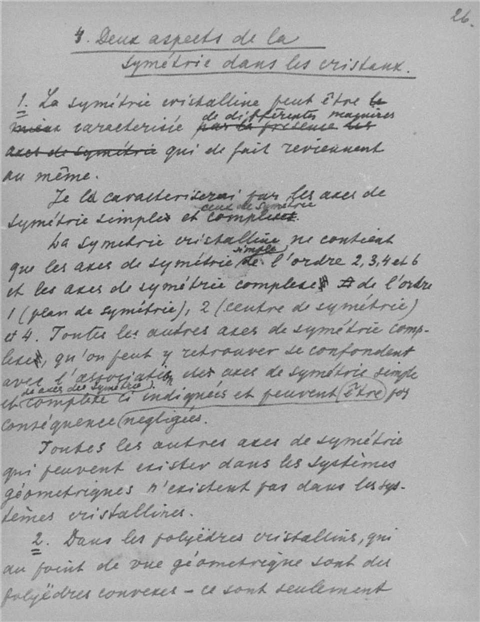 26.
4. Deux aspects de la
symétrie dans les cristaux.
1. La symétrie cristalline peut être le
mieux caracterisée par la présence des de différentes manières
axes de symétrie qui de fait reviennent
au même.
Je la caracteriserai par les axes de
symétrie simples et complexes. ceux de symétrie
La symetrie cristalline ne contient
que les axes de symétrie simple de l'ordre 2, 3, 4 et 6
et les axes de symétrie complexe de l'ordre
1 (plan de symétrie), 2 (centre de symétrie)
et 4. Toutes les autres axes de symétrie comp-
lexe, qu'on peut y retrouver se confondent
avec l'association des axes de symétrie simple
de axes de symétrie
et complexe ci indiquées et peuvent être par
conséquence negligées.
Toutes les autres axes de symétrie
qui peuvent exister dans les systèmes
géometriques n'existent pas dans les sys-
tèmes cristallines.
2. Dans les polyèdres cristallins, qui
au point de vue géometrique sont des
polyèdres convexes – ce sont seulement